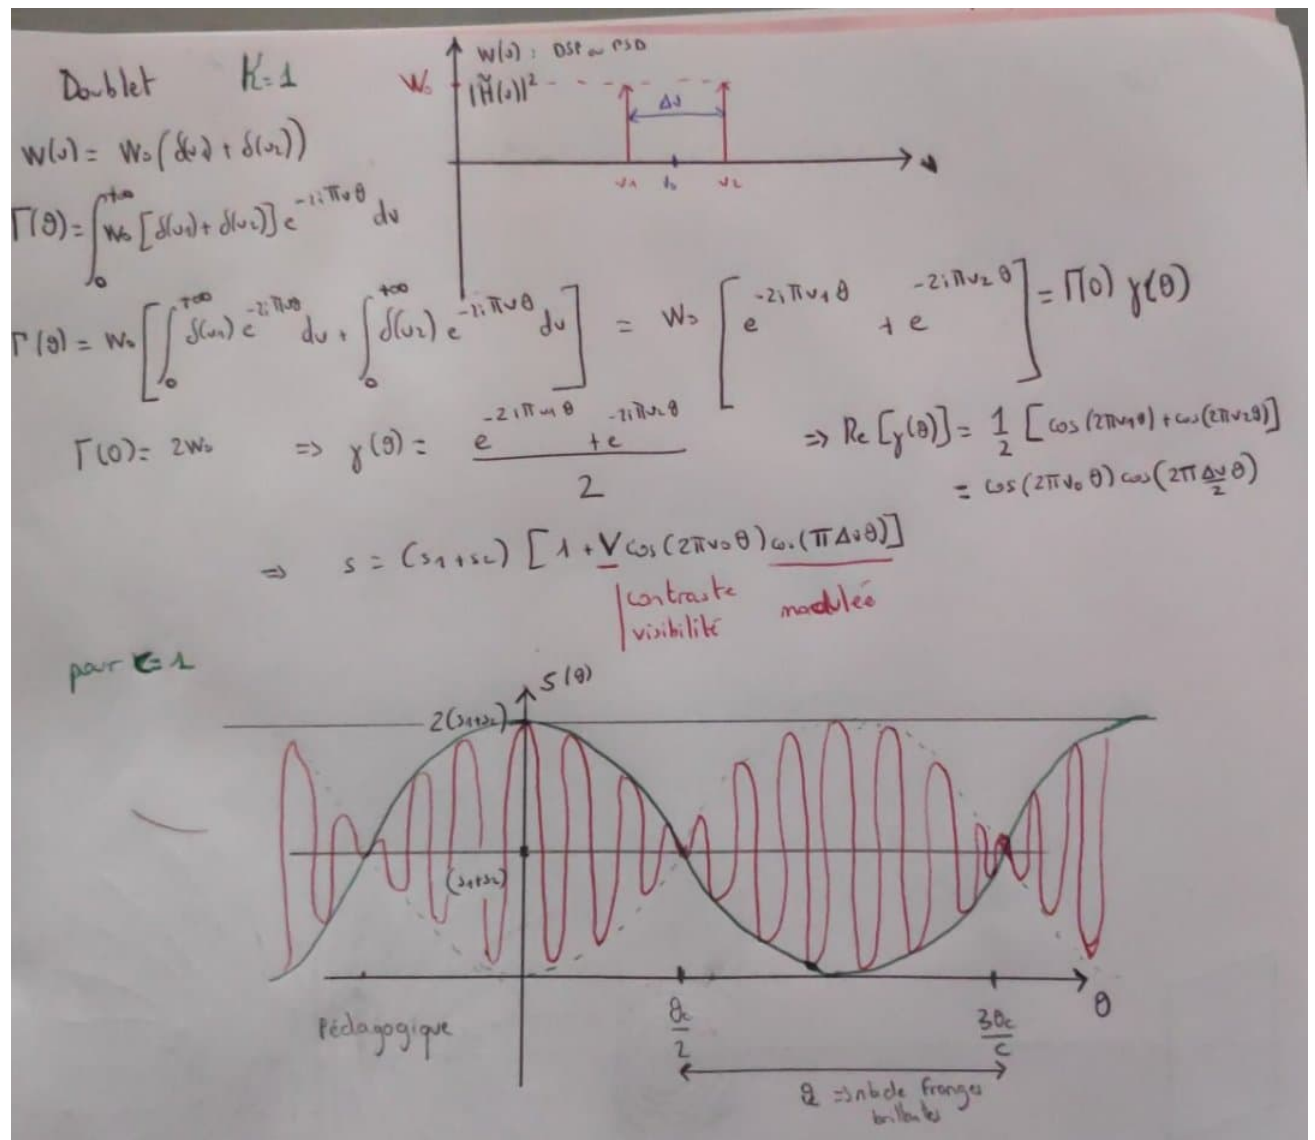 Doublet K=1
W(ν) : DSP ou PSD
W₀ |H̃(ν)|²
Δν
ν₁ ν₀ ν₂ ν
W(ν) = W₀ (δ(ν₁) + δ(ν₂))
Γ(θ) = ∫₀^{+∞} W₀ [δ(ν₁) + δ(ν₂)] e^{-2iπνθ} dν
Γ(θ) = W₀ [∫₀^{+∞} δ(ν₁) e^{-2iπνθ} dν + ∫₀^{+∞} δ(ν₂) e^{-2iπνθ} dν] = W₀ [e^{-2iπν₁θ} + e^{-2iπν₂θ}] = Γ(0) γ(θ)
Γ(0) = 2W₀ ⇒ γ(θ) = (e^{-2iπν₁θ} + e^{-2iπν₂θ})/2 ⇒ Re[γ(θ)] = 1/2 [cos(2πν₁θ) + cos(2πν₂θ)]
= cos(2πν₀θ) cos(2π Δν/2 θ)
⇒ s = (s₁+s₂) [1 + V cos(2πν₀θ) cos(πΔνθ)]
contraste modulée
visibilité
pour =1
S(θ)
2(s₁+s₂)
(s₁+s₂)
θ
Pédagogique
θc/2 3θc/c
⇒ nb de franges
brillantes